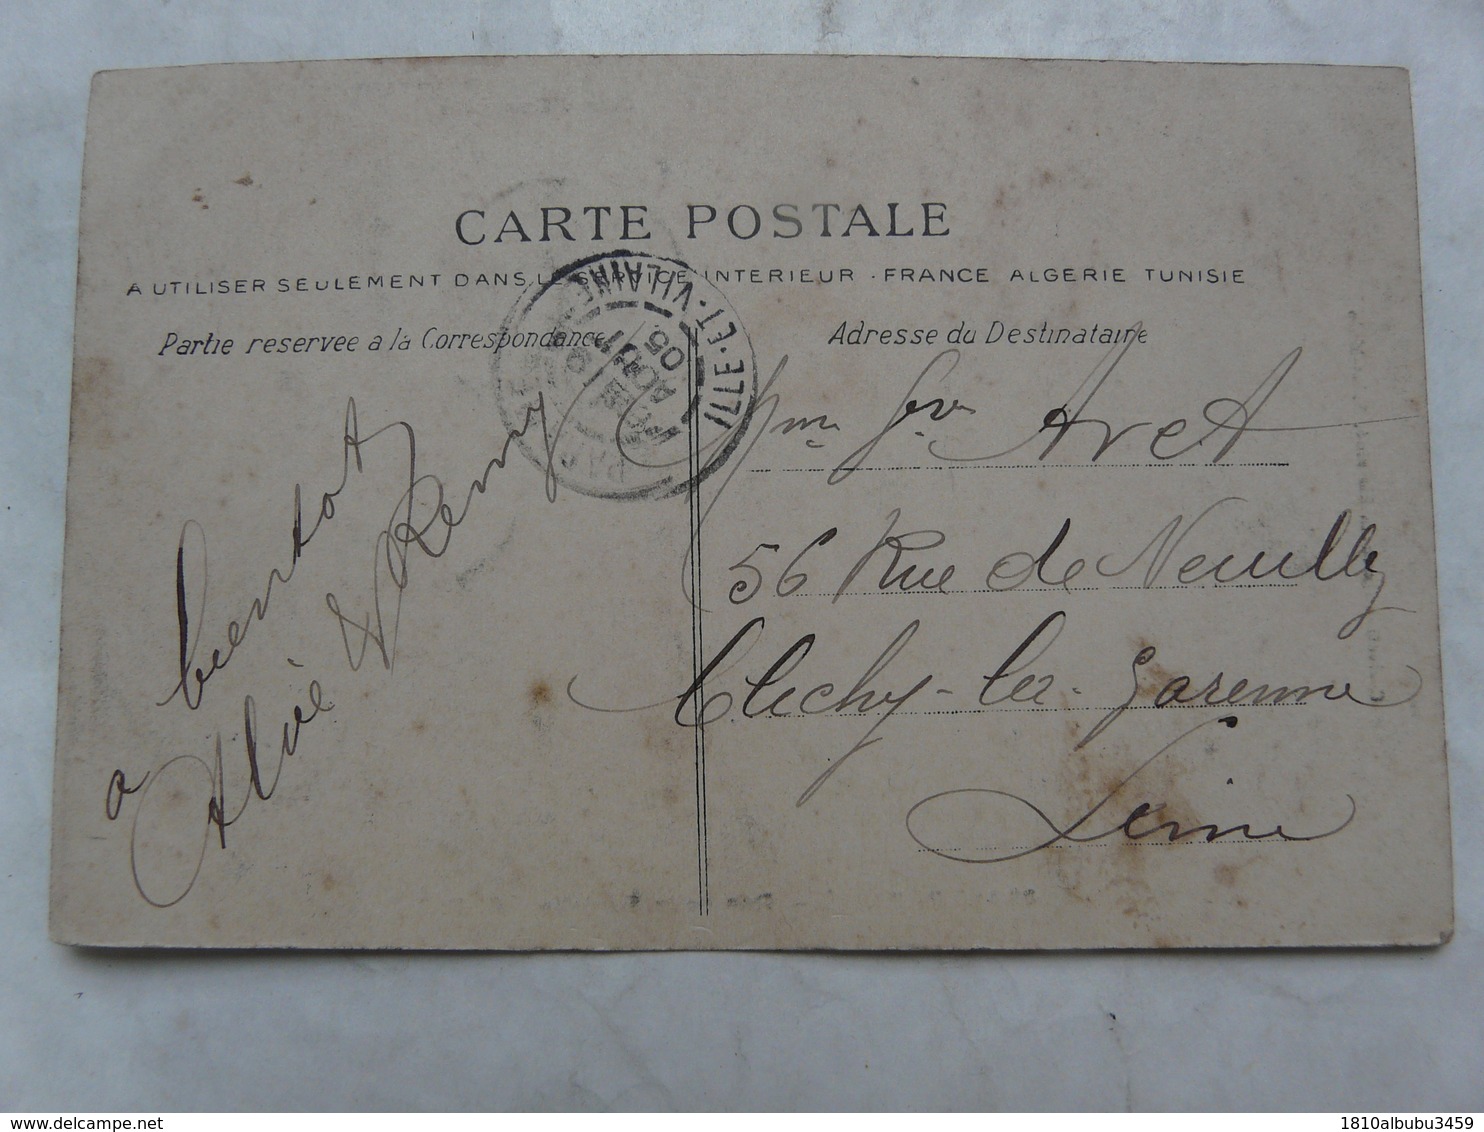 CARTE POSTALE
A UTILISER SEULEMENT DANS LE SERVICE INTERIEUR · FRANCE ALGERIE TUNISIE
Partie reservee a la Correspondance
Adresse du Destinataire
ILLE-ET-VILAINE
AOUT
05
a bientot
Alice & Remy
Mme Gve Avet
56 Rue de Neuilly
Clichy-la-Garenne
Seine
delcampe.net
1810albubu3459